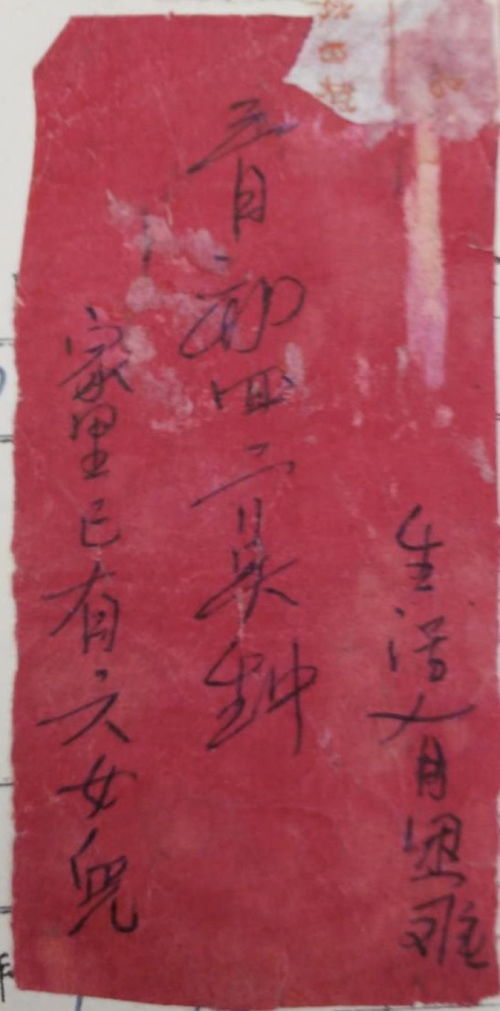 生活有困难
三月初四二奌钟
家里已有六女兒